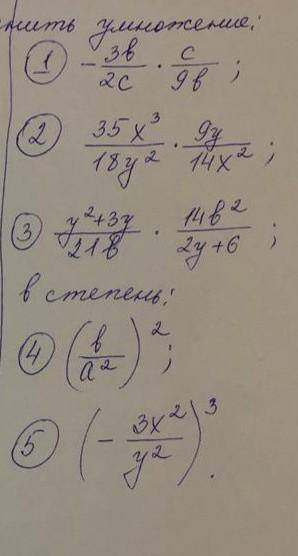 нить умножение:
① -3в/2с · с/9в ;
② 35x³/18y² · 9y/14x² ;
③ y²+3y/21в · 14в²/2y+6 ;
в степень:
④ (в/a²)² ;
⑤ (-3x²/y²)³ .